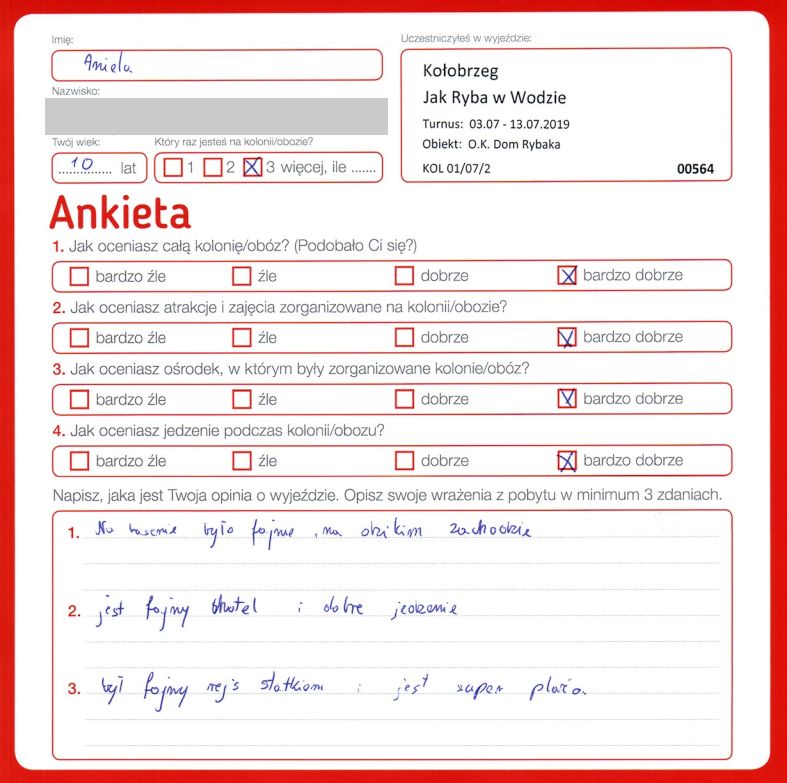 Imię:
Aniela
Uczestniczyłeś w wyjeździe:
Kołobrzeg
Jak Ryba w Wodzie
Turnus: 03.07 - 13.07.2019
Obiekt: O.K. Dom Rybaka
KOL 01/07/2 00564
Nazwisko:
Twój wiek:
10 lat
Który raz jesteś na kolonii/obozie?
1 2 3 więcej, ile .......
Ankieta
1. Jak oceniasz całą kolonię/obóz? (Podobało Ci się?)
bardzo źle źle dobrze bardzo dobrze
2. Jak oceniasz atrakcje i zajęcia zorganizowane na kolonii/obozie?
bardzo źle źle dobrze bardzo dobrze
3. Jak oceniasz ośrodek, w którym były zorganizowane kolonie/obóz?
bardzo źle źle dobrze bardzo dobrze
4. Jak oceniasz jedzenie podczas kolonii/obozu?
bardzo źle źle dobrze bardzo dobrze
Napisz, jaka jest Twoja opinia o wyjeździe. Opisz swoje wrażenia z pobytu w minimum 3 zdaniach.
1. Na basenie było fajnie, na dzikim zachodzie
2. jest fajny hotel i dobre jedzenie
3. był fajny rejs statkiem i jest super plaża.